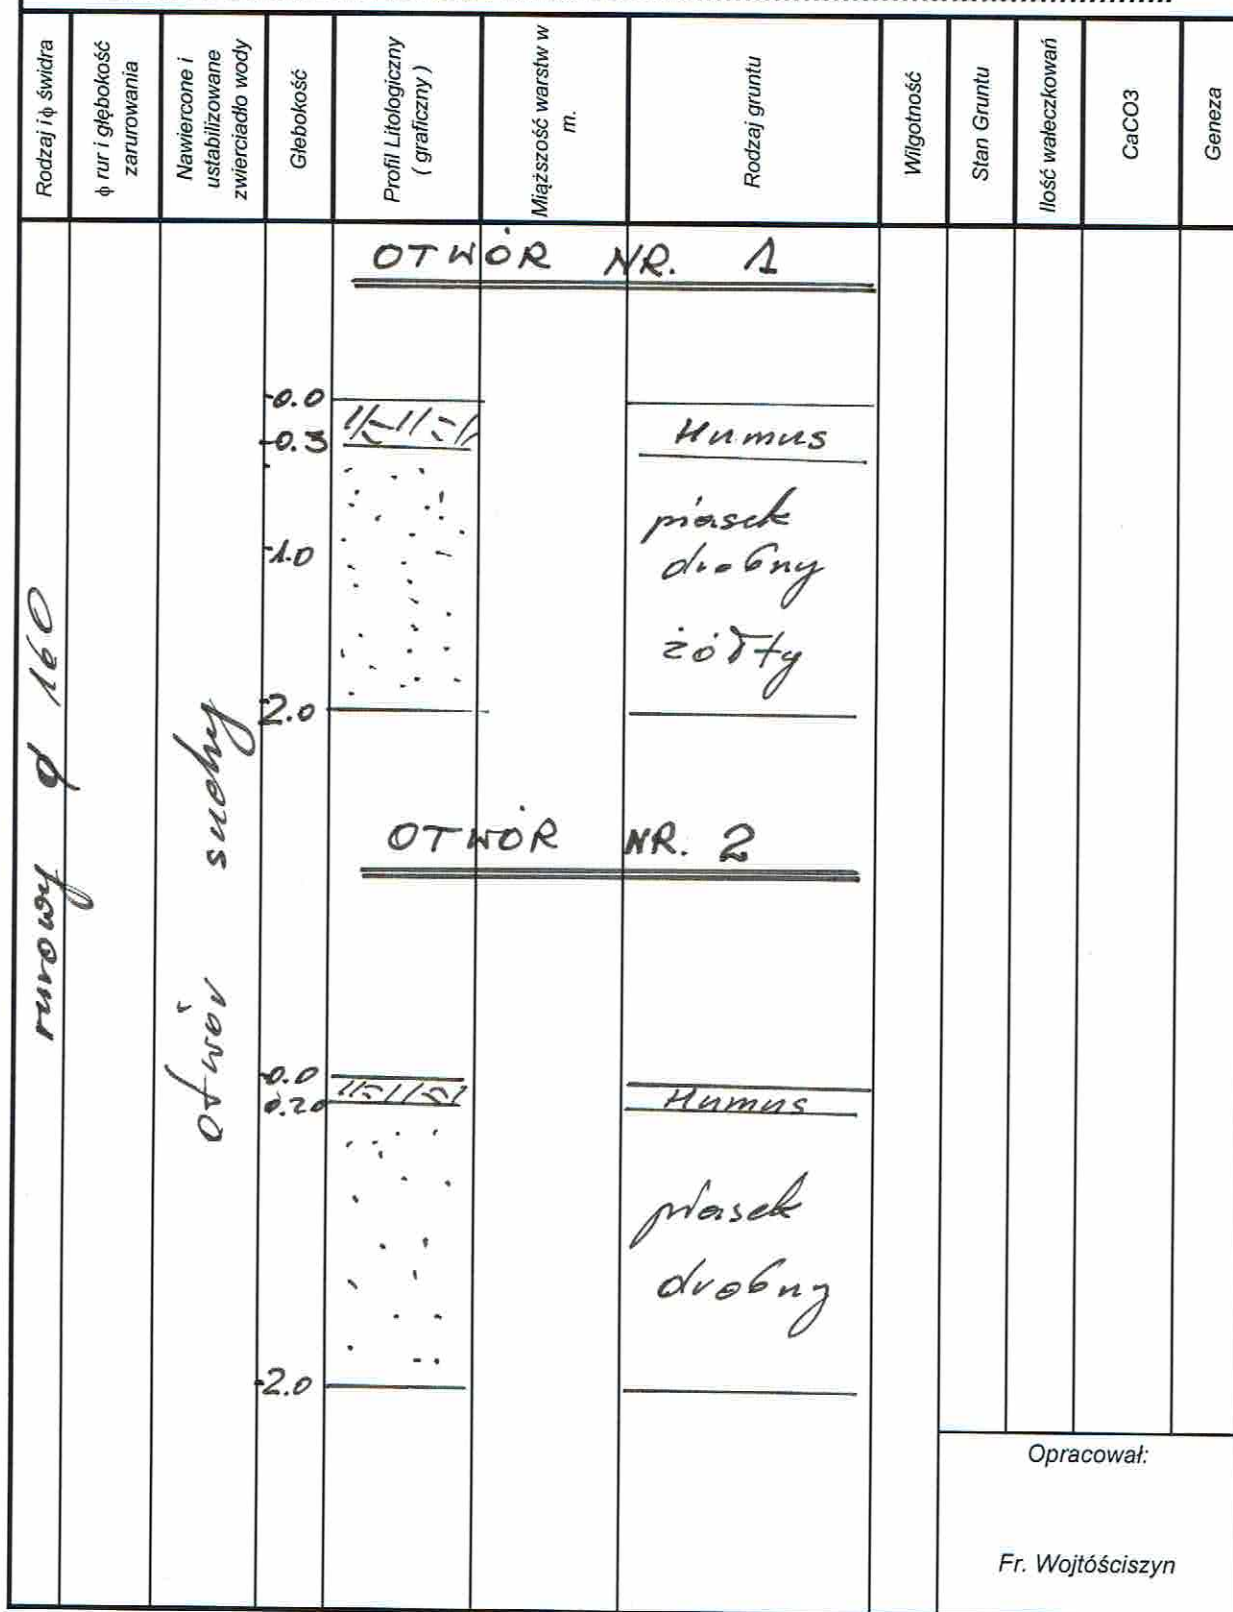 Rodzaj i ϕ świdra
ϕ rur i głębokość
zarurowania
Nawiercone i
ustabilizowane
zwierciadło wody
Głebokość
Profil Litologiczny
( graficzny )
Miąższość warstw w
m.
Rodzaj gruntu
Wilgotność
Stan Gruntu
Ilość wałeczkowań
CaCO3
Geneza
OTWÓR NR. 1
0.0
0.3
Humus
piasek
1.0
drobny
żółty
2.0
rurowy ϕ 160
otwór suchy
OTWÓR NR. 2
0.0
0.20
Humus
piasek
drobny
2.0
Opracował:
Fr. Wojtóściszyn